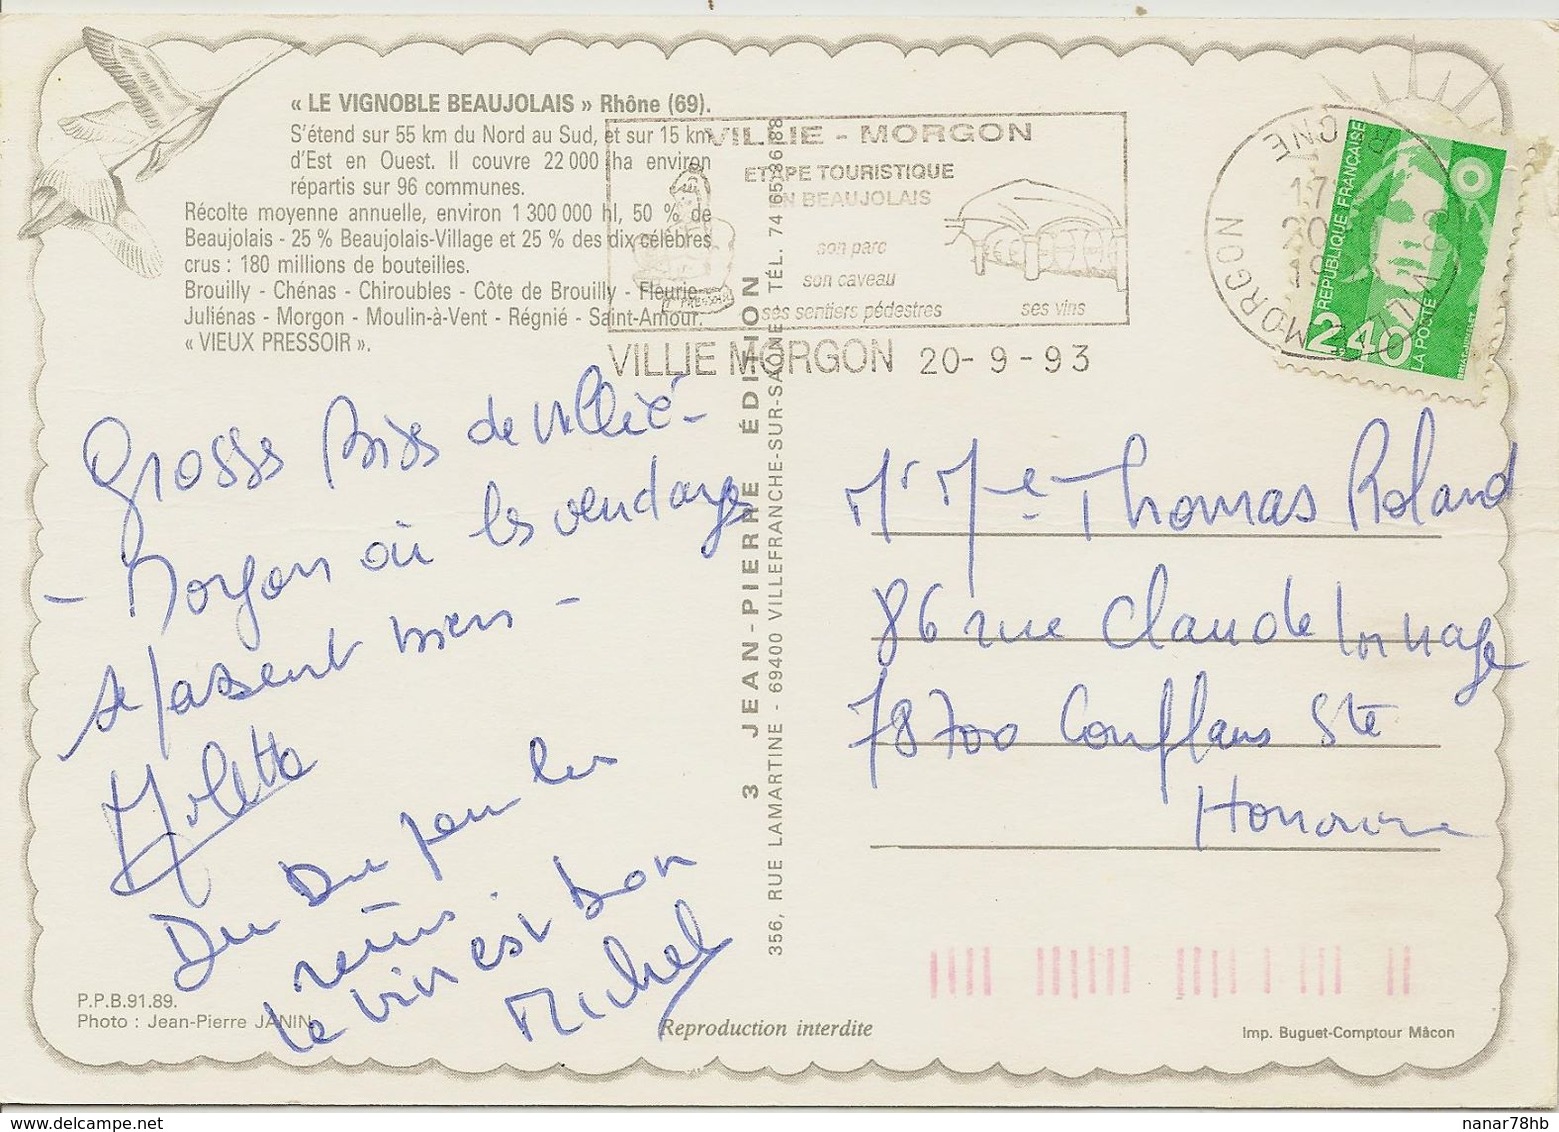 « LE VIGNOBLE BEAUJOLAIS » Rhône (69).
S'étend sur 55 km du Nord au Sud, et sur 15 km
d'Est en Ouest. Il couvre 22 000 ha environ
répartis sur 96 communes.
Récolte moyenne annuelle, environ 1 300 000 hl, 50 % de
Beaujolais - 25 % Beaujolais-Village et 25 % des dix célèbres
crus : 180 millions de bouteilles.
Brouilly - Chénas - Chiroubles - Côte de Brouilly - Fleurie -
Juliénas - Morgon - Moulin-à-Vent - Régnié - Saint-Amour.
« VIEUX PRESSOIR ».
VILLIE - MORGON
ETAPE TOURISTIQUE
EN BEAUJOLAIS
son parc
son caveau
ses sentiers pédestres
ses vins
VILLIE MORGON 20-9-93
REPUBLIQUE FRANÇAISE
2,40
LA POSTE
Gross Biss de Villié -
- Morgon où les vendanges
se passent bien -
Du Du pour les
Le vin est bon
Michel
3 JEAN-PIERRE ÉDITION
356, RUE LAMARTINE - 69400 VILLEFRANCHE-SUR-SAÔNE TÉL. 74 65 36 88
Mr Me Thomas Roland
86 rue Claude
78700 Conflans Ste
Honorine
P.P.B.91.89.
Photo : Jean-Pierre JANIN
Reproduction interdite
Imp. Buguet-Comptour Mâcon
nanar78hb